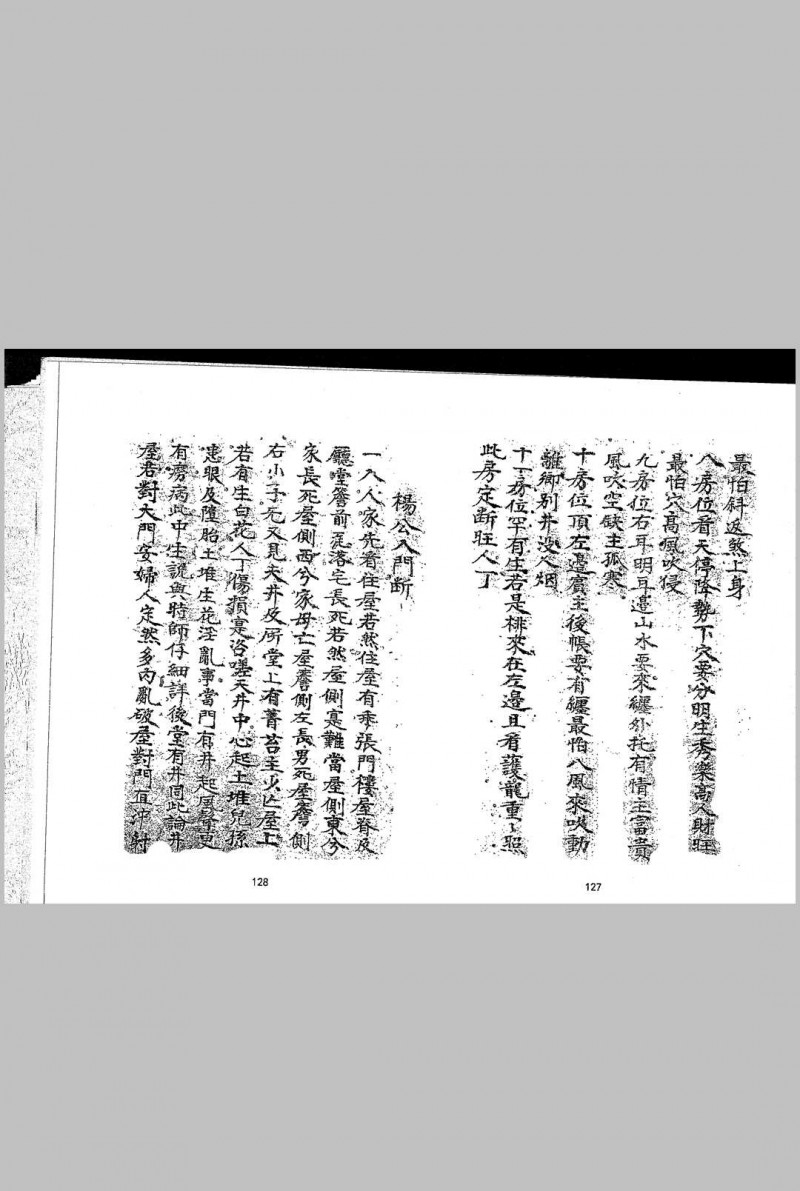 最怕斜返煞上身
八房位看天停降勢下穴要分明生秀樂高人財旺
最怕穴高風吹侵
九房位右耳明耳邊山水要來纏外托有情主富貴
風吹空缺主孤寒
十房位頂左邊賓主後帳要有纏最怕八風來吹動
離鄉別井没人烟
十一房位罕有生若是排來在左邊且看護龍重々照
此房定斷旺人丁
127
楊公入門斷
一入人家先看住屋若然住屋有乖張門樓屋脊及
廳堂簷前混落宅長死若然屋側寔難當屋側東兮
家長死屋側西兮家母亡屋簷側左長男死屋簷側
右小子亡又見天井及所堂上有菁苔主少亡屋上
若有生白花人丁傷損寔咨嗟天井中心起土堆兒孫
患眼及墮胎土堆生花淫亂事當門有井起風聲更
有癆病此中生説與時師仔細詳後堂有井同此論井
屋若對大門安婦人定然多内亂破屋對門直冲射
128